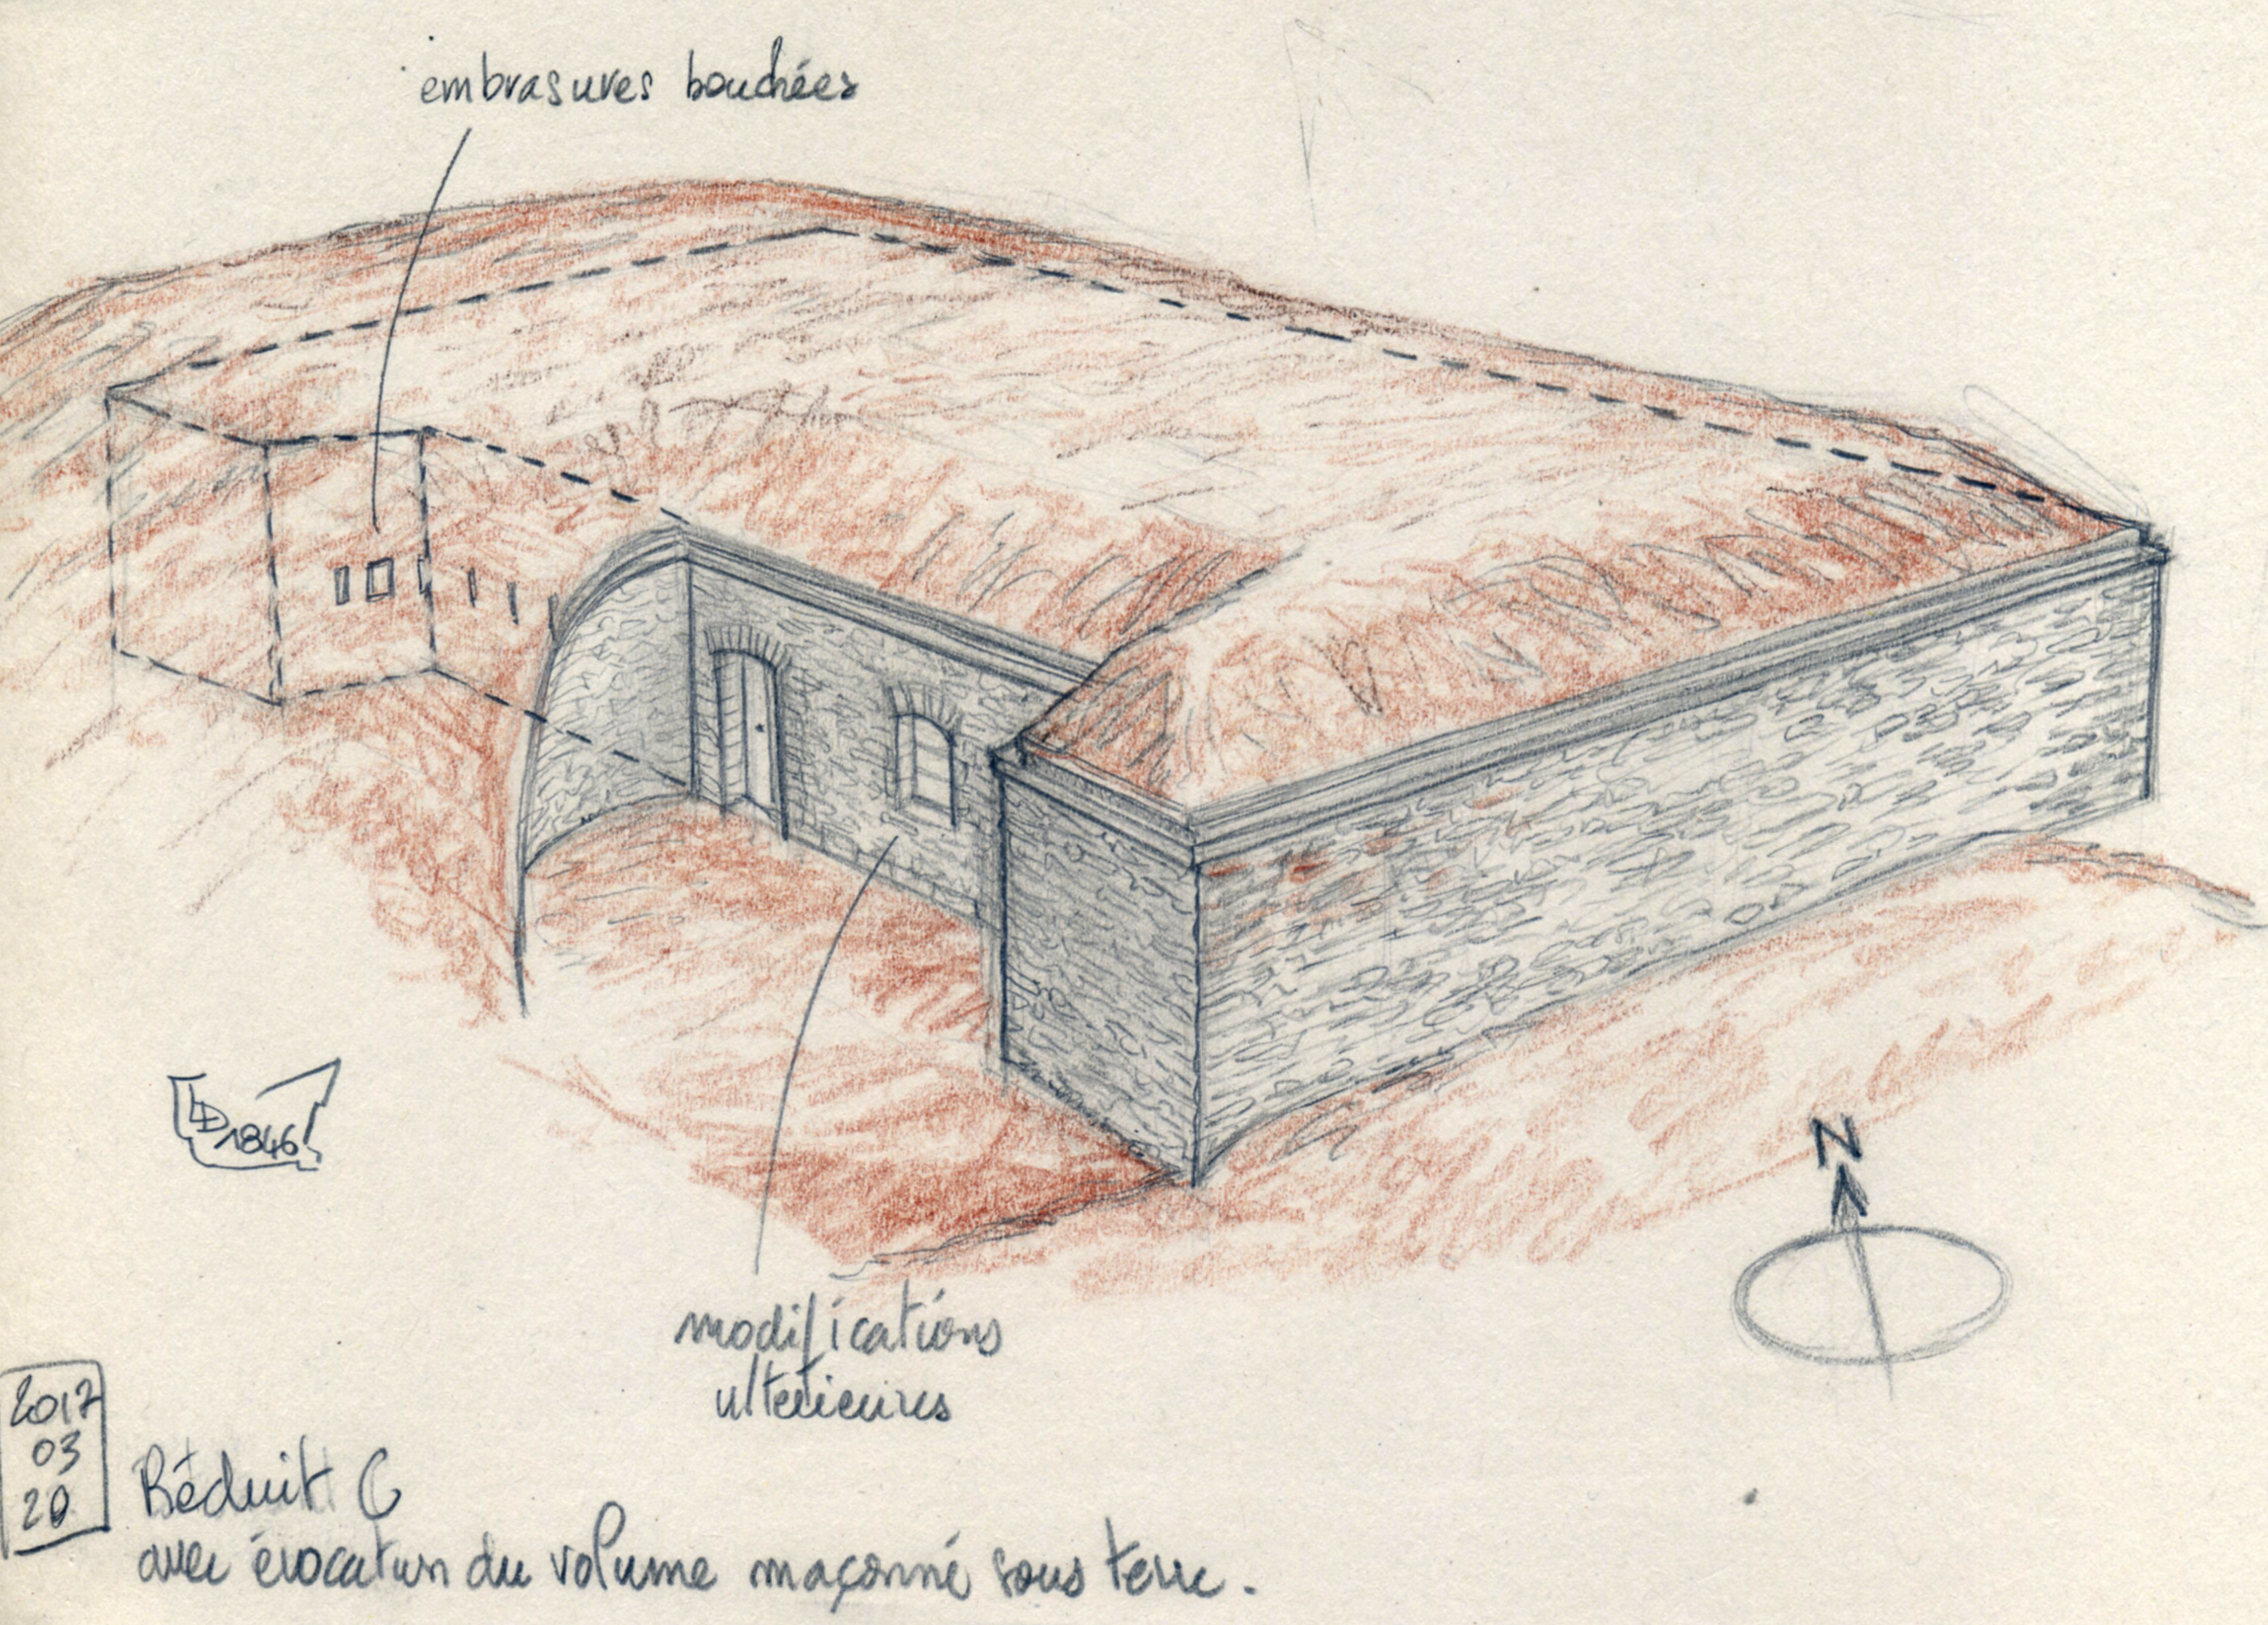 embrasures bouchées
LD
1846
N
modifications
ultérieures
2017
03
20
Réduit C
avec évocation du volume maçonné sous terre.